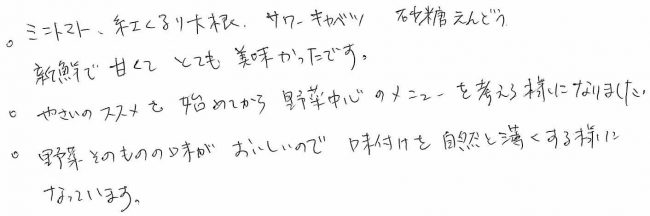 。ミニトマト、紅くるり大根、サワーキャベツ 砂糖えんどう
新鮮で甘くて とても 美味かったです。
。やさいのススメを 始めてから 野菜中心のメニューを考える様になりました。
。野菜そのものの味が おいしいので 味付けを 自然と薄くする様に
なっています。